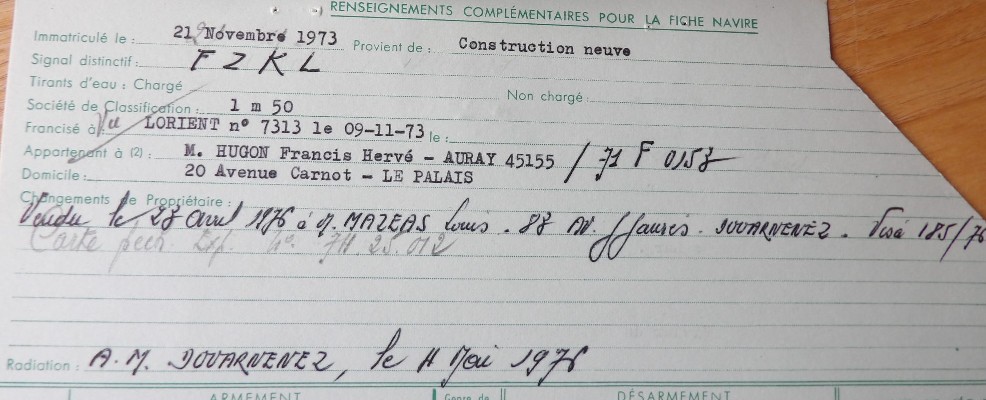 RENSEIGNEMENTS COMPLÉMENTAIRES POUR LA FICHE NAVIRE
Immatriculé le : 21 Novembre 1973 Provient de : Construction neuve
Signal distinctif : FZKL
Tirants d'eau : Chargé Non chargé :
Société de Classification : 1 m 50
Francisé à LORIENT n° 7313 le 09-11-73 le :
Appartenant à (2) : M. HUGON Francis Hervé - AURAY 45155 / 71 F 0158
Domicile : 20 Avenue Carnot - LE PALAIS
Changements de Propriétaire :
Vendu le 28 avril 1976 à M. MAZEAS Louis. 88 AV. J Jaurès. DOUARNENEZ. Visa 185/76
Carte
Radiation : A.M. DOUARNENEZ, le 11 Mai 1976
ARMEMENT Genre de DÉSARMEMENT